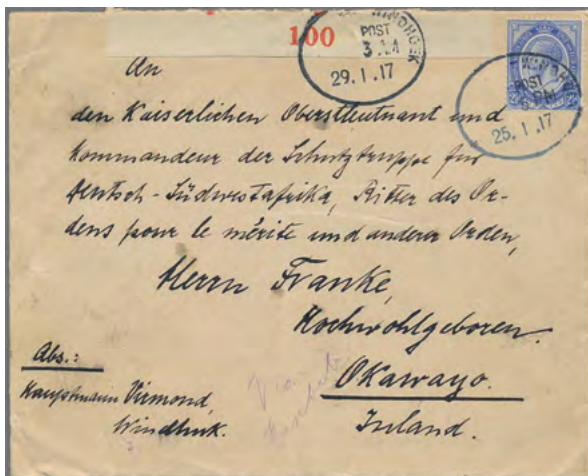 100
WINDHOEK
POST
3
29.1.17
WINDHU
POST
PM
25.1.17
An
den Kaiserlichen Oberstleutnant und
Kommandeur der Schutztruppe für
Deutsch-Südwestafrika, Ritter des Or-
dens pour le mérite und anderer Orden,
Herrn Franke,
Hochwohlgeboren.
Okawayo.
Inland.
Abs.:
Hauptmann Virmond,
Windhuk.
Via